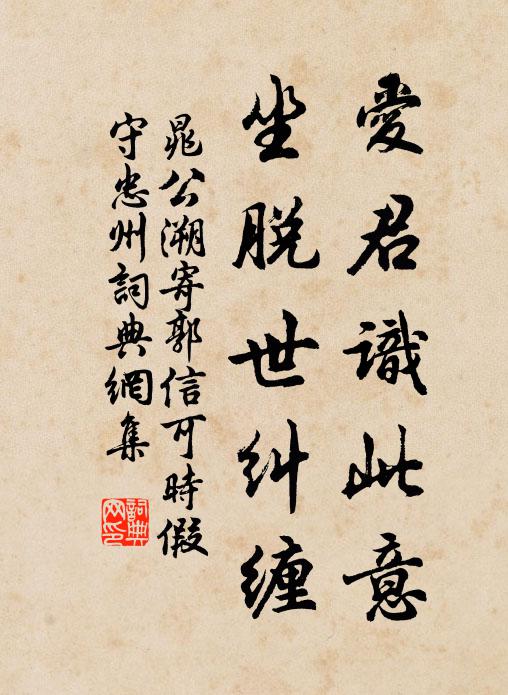 愛君識此意
坐脫世糾纏
晁公溯寄郭信可時假
守忠州詞典網集
詞典
网印